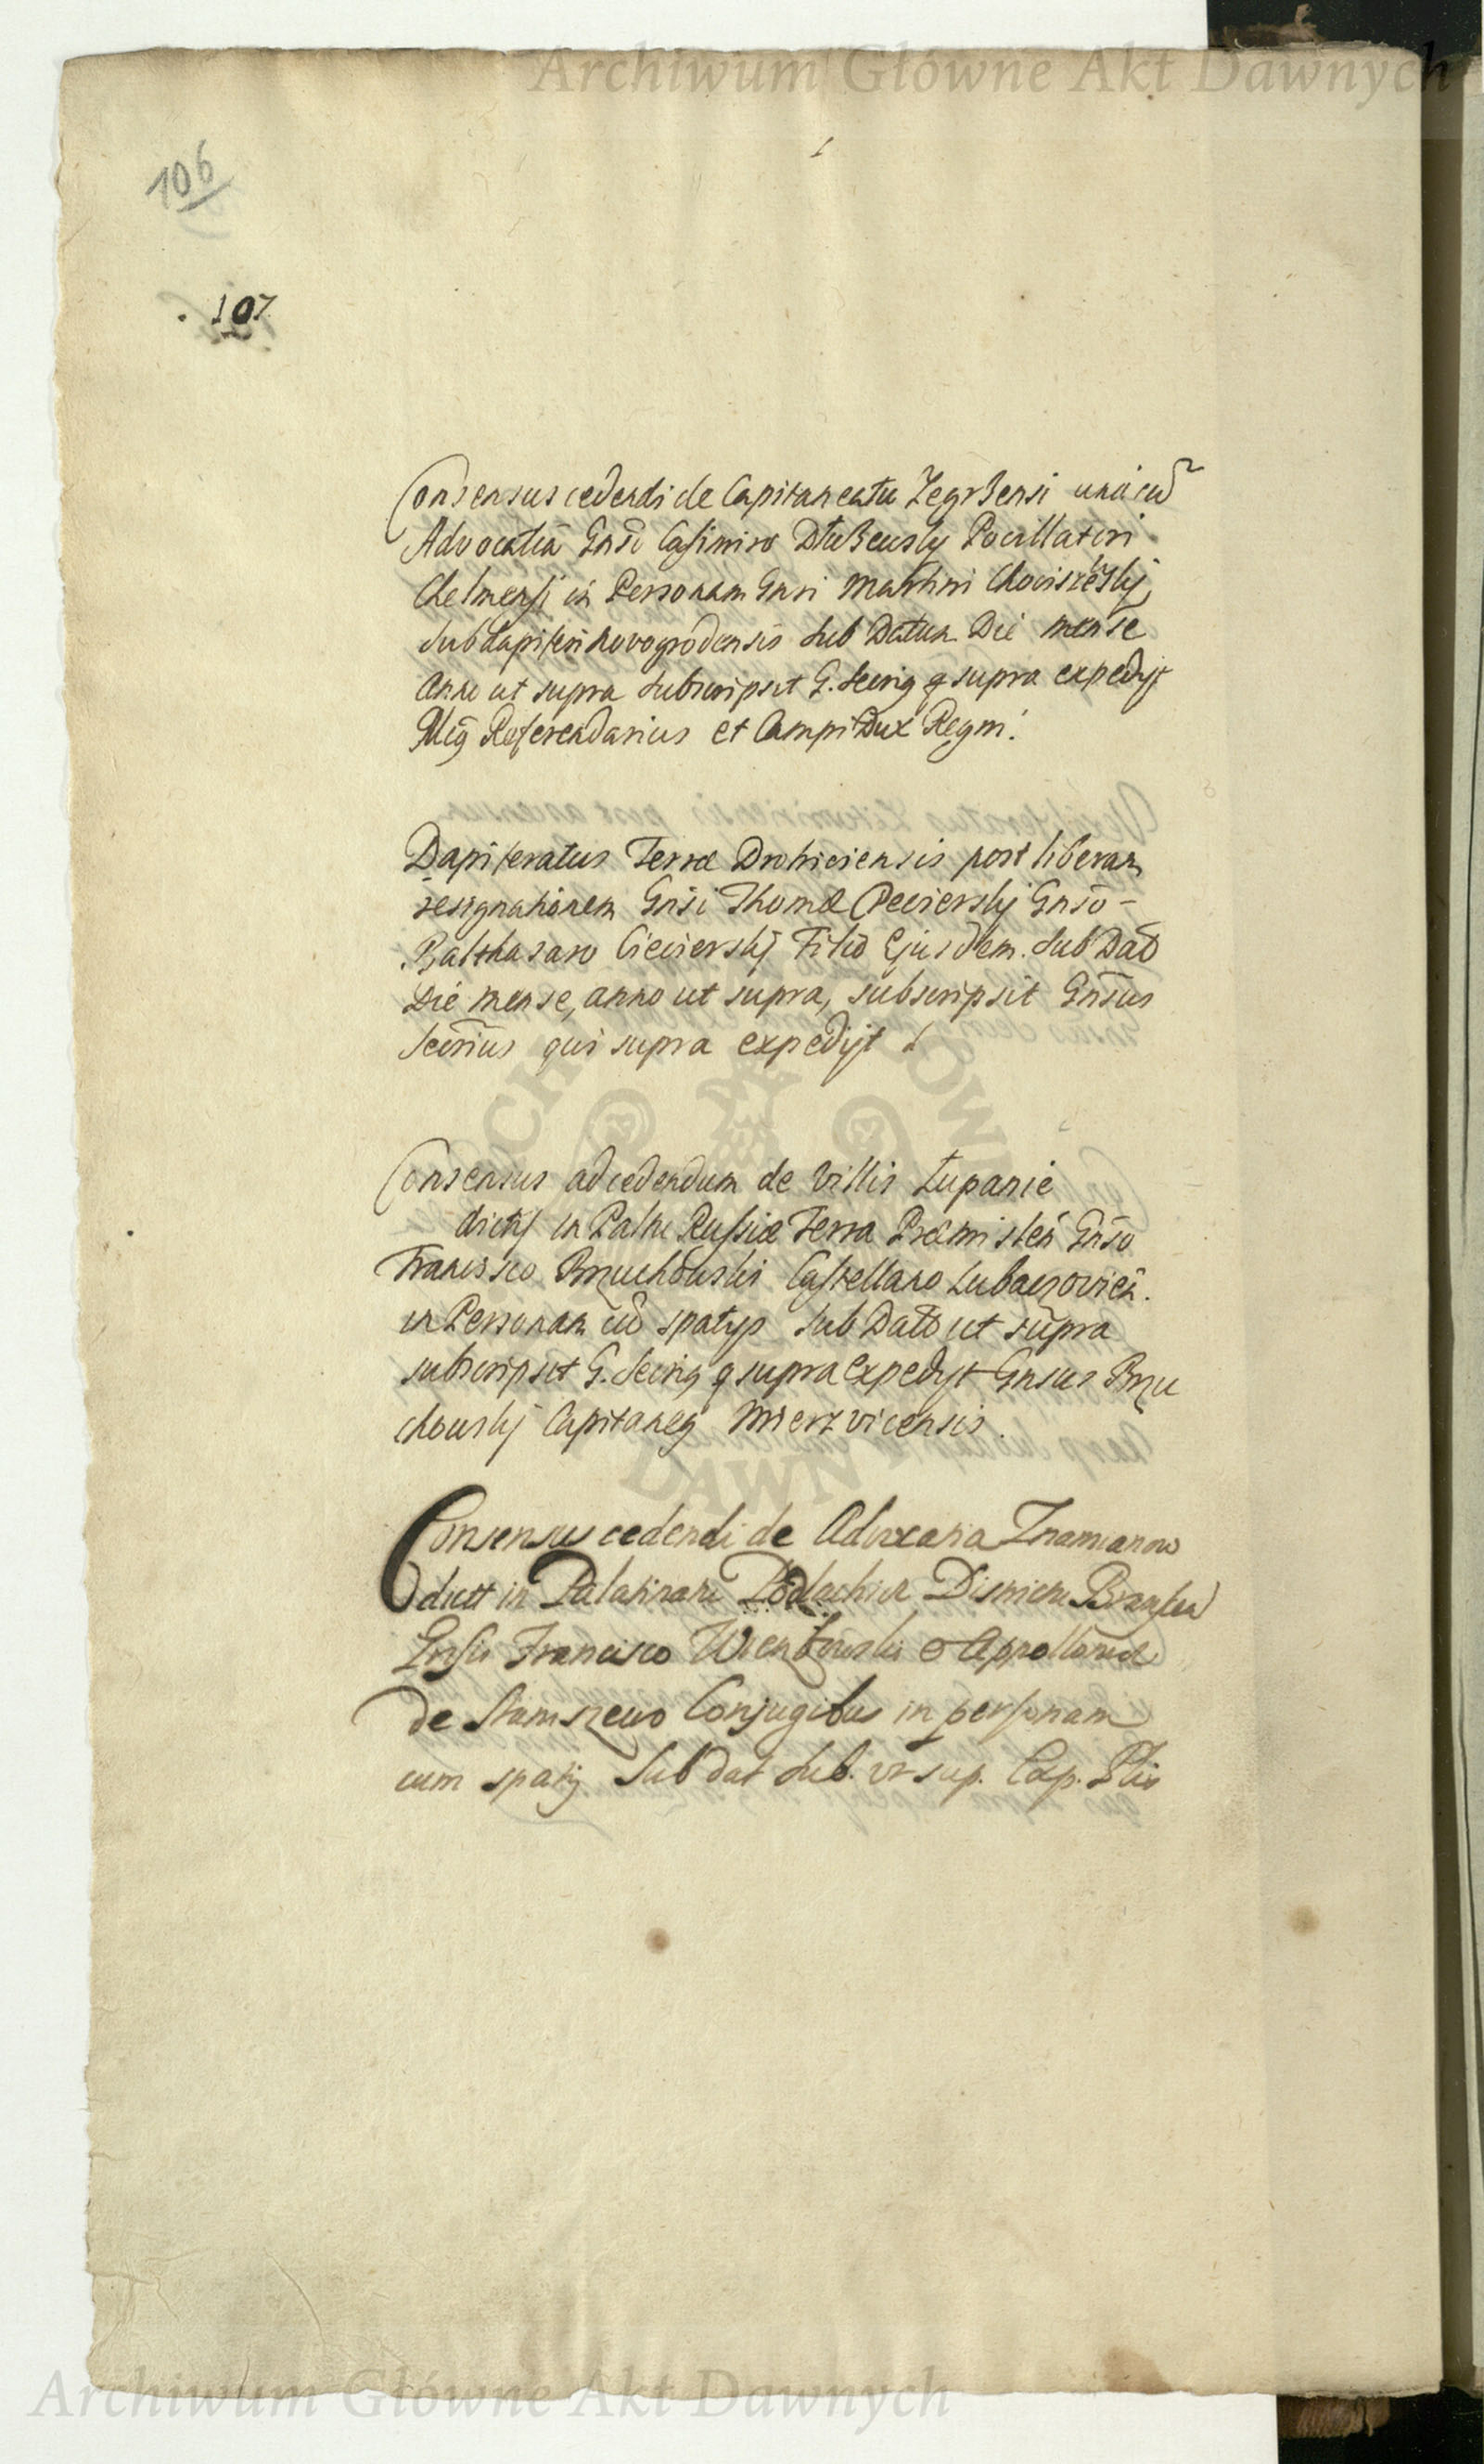 Archiwum Główne Akt Dawnych
106
107
Consensus cedendi de Capitaneatu Zegrzensi una cũ
Advocatiã Gnso Casimiro Dłuzeusky Pocillatori
Chelmensi in Personam Gnsi Martini Chociszeskj
Subdapiferi Novogrodensis sub Datum Die mense
Anno ut supra subscripsit G. Secrig q supra expedijt
Mig Referendarius et Campi Dux Regni.
Dapiferatus Terræ Drohiciensis post liberam
resignationem Gnsi Thomæ Ciecierskj Gnso
Balthasaro Ciecierskj Filio Ejusdem. Sub Dat
Die mense, anno ut supra, subscripsit Gnsus
Secrius qui supra expedijt
Consensus ad cedendum de Villis Łupanie
dictis in Palnu Russiæ Terra Præmislen Gnso
Francisco Bruchouski Castellano Lubaczovien.
in Personam cũ spatys sub Dato ut supra
subscripsit G. Secrig q supra expedijt Gnsus Bru
chouskj Capitaneg Mierzvicensis.
Consensus cedendi de Advocatia Znamianow
dict in Palatinatu Podlachiæ Districtu Bransken
Gnsis Francisco Wierzbouski & Appolloniæ
de Staniszewo Conjugibus in personam
cum spatij Sub dat sub. ut sup. Exp.
ARCHIWUM GŁÓWNE AKT DAWNYCH
Archiwum Główne Akt Dawnych